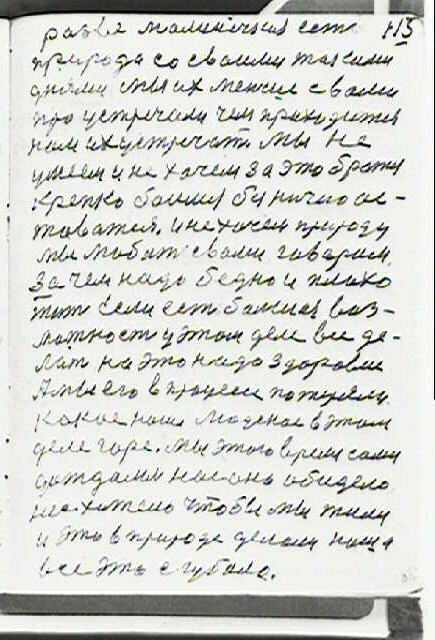 разве маленичкия есть 113
природа со своими такими
днями мы их меньше с вами
про устречали чем приходится
нам их устречать. Мы не
умеем и не хочем за это братся
крепко боимся бы ничого ос-
товатся. и не хочем природу
мы любит своим говорам.
за чем надо бедно и плохо
жит если ест большая воз-
можност у этом деле все де-
лат на это надо здоровие
А мы его в процесе потеряли.
какое наше людское в этом
деле горе. мы этого время сами
дождались нас оно обидело
не хотело чтобы мы жили
и это в природе делали наша
все это сгубало.